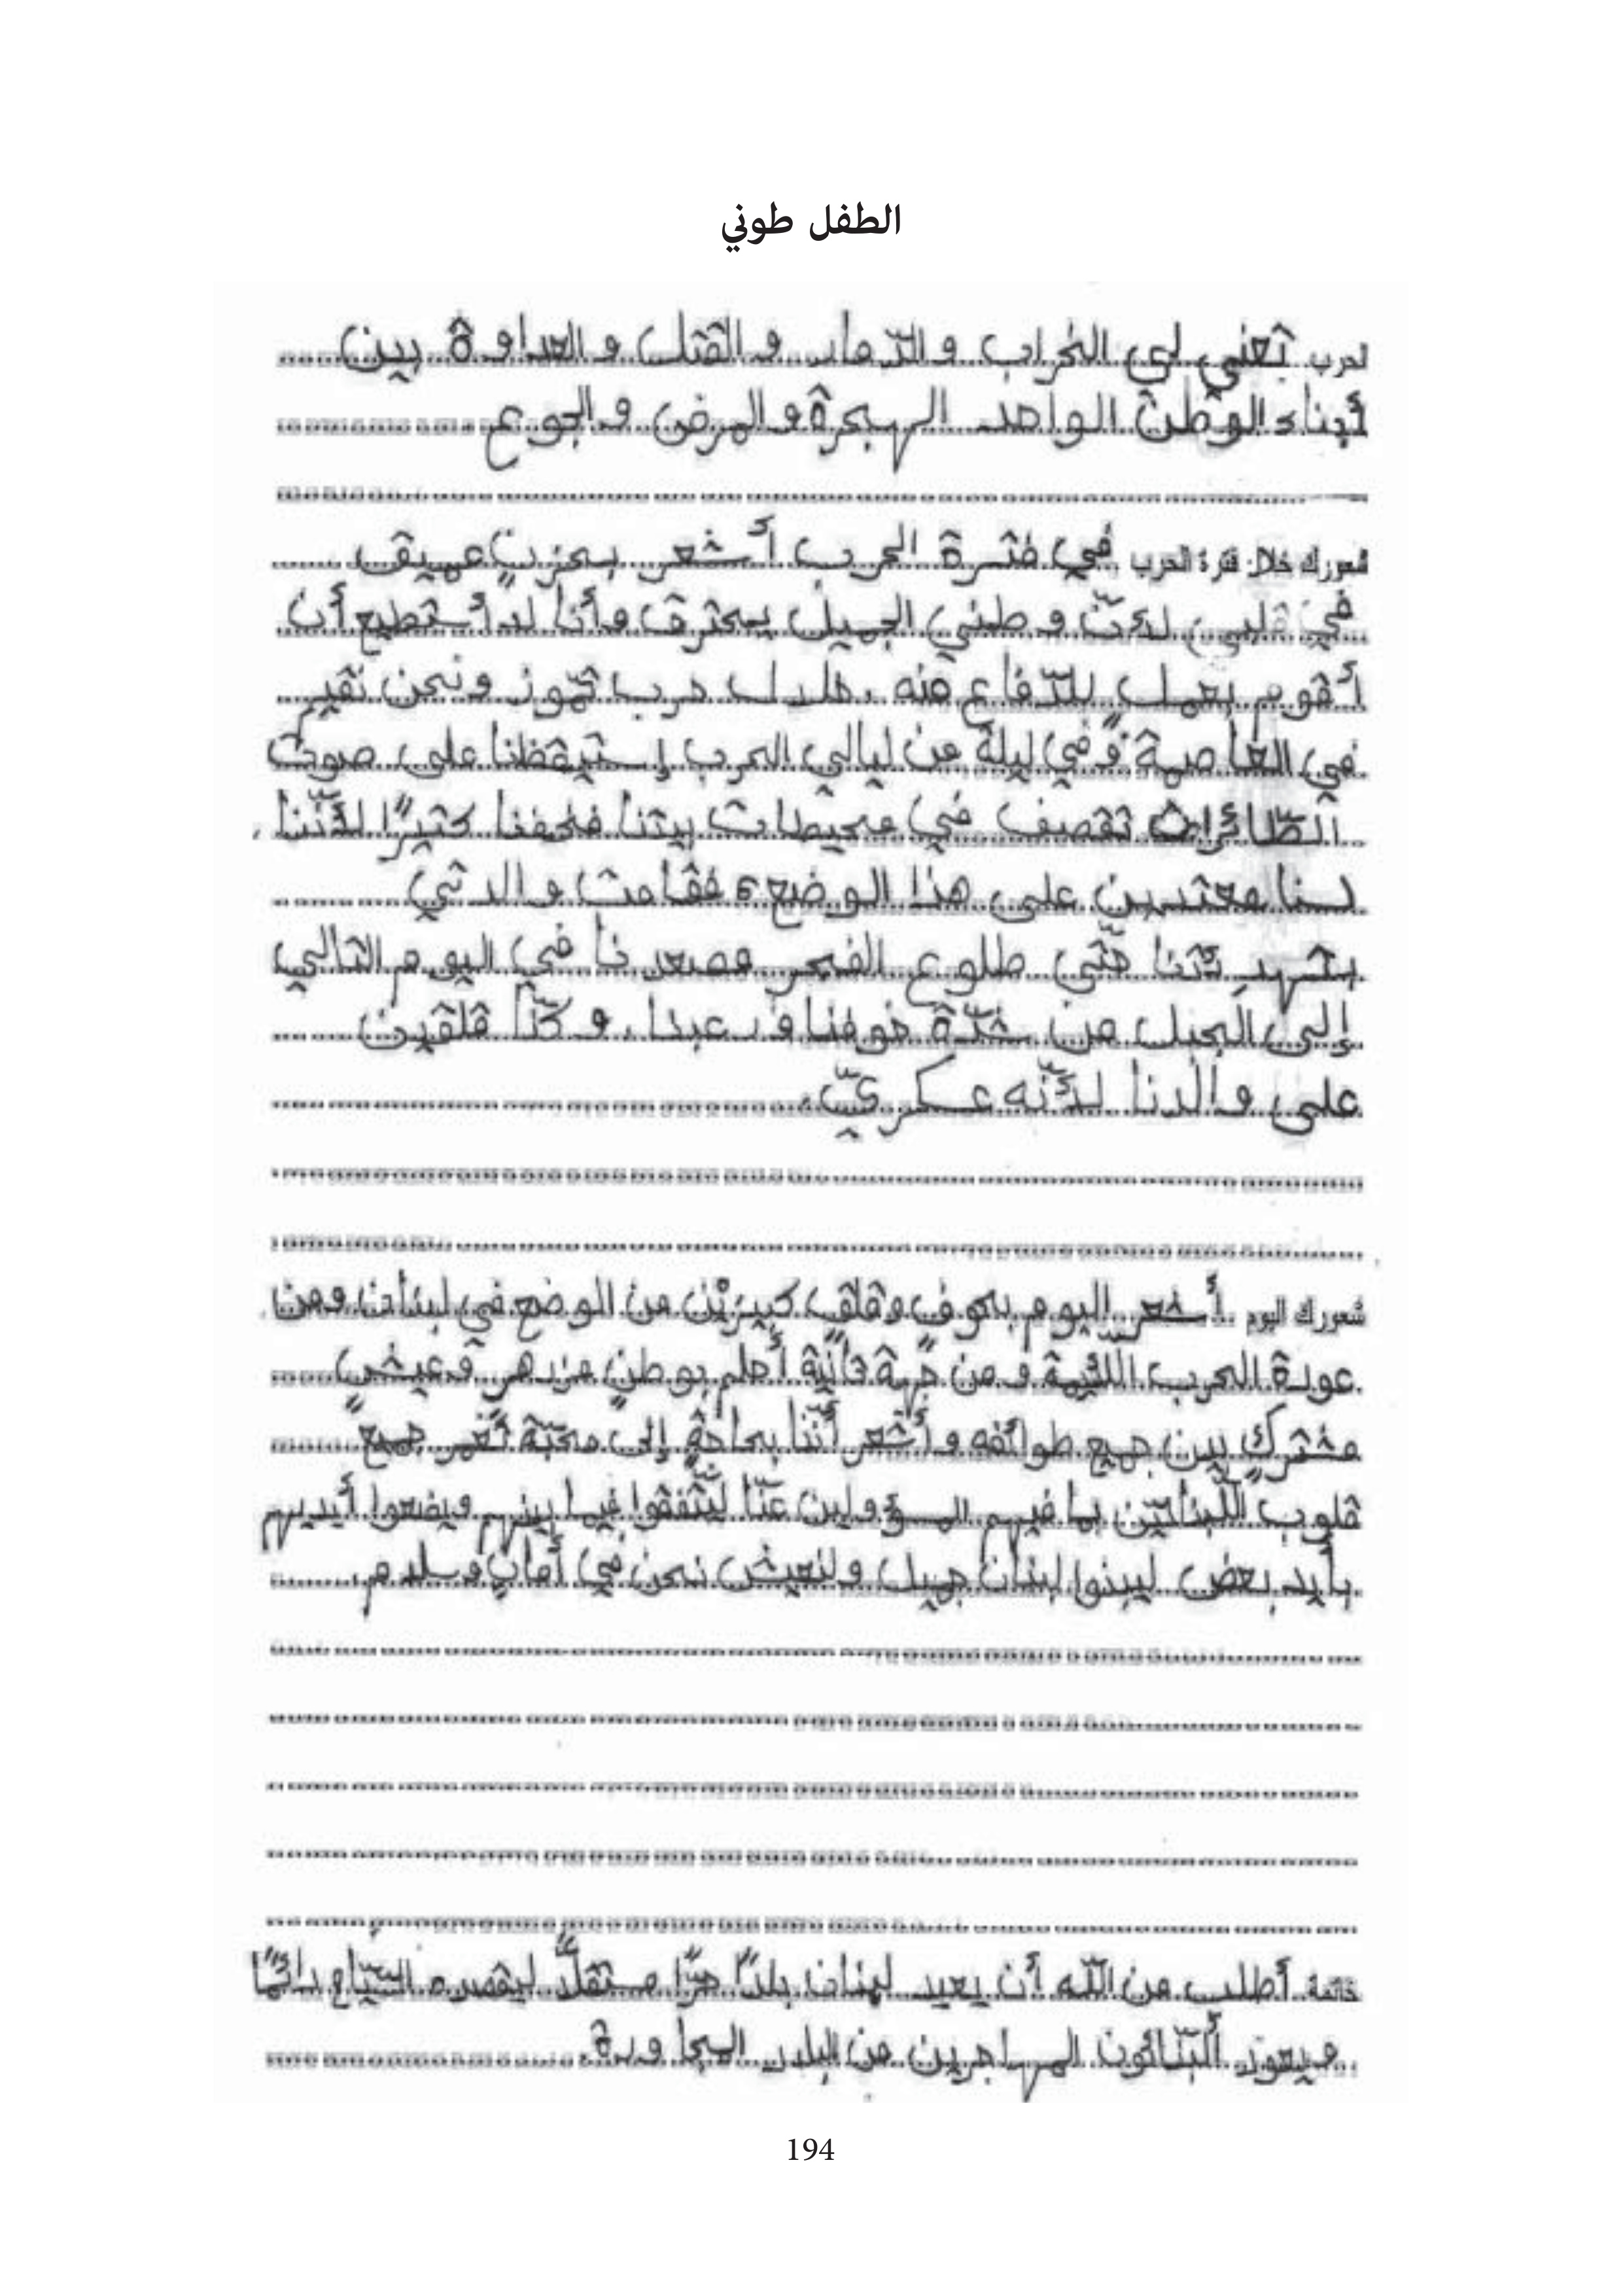 الطفل طوني
الحرب تعني لي الخراب والدّمار والقتل والعداوة بين
أبناء الوطن الواحد الهجرة والمرض والجوع
شعورك خلال فترة الحرب في فترة الحرب أشعر بحزنٍ عميق
في قلبي لأنّ وطني الجميل يحترق وأنا لا أستطيع أن
أقوم بعمل للدّفاع عنه. خلال حرب تمّوز ونحن نقيم
في العاصمة وفي ليلة من ليالي الحرب إستيقظنا على صوت
الطّائرات تقصف في محيطات بيتنا فخفنا كثيرًا لأنّنا
لسنا معتدين على هذا الوضع، فقامت والدتي
بتهدِئتنا حتّى طلوع الفجر وصعدنا في اليوم التالي
إلى الجبل من شدّة خوفنا ورعبنا. وكنّا قلقين
على والدنا لأنّه عسكريّ.
شعورك اليوم أشعر اليوم بخوف وقلق كبيرَيْن من الوضع في لبنان ومن
عودة الحرب اللّئيمة ومن جهة ثانية أحلم بوطنٍ مزدهر وعيشٍ
مشتركٍ بين جميع طوائفه وأشعر أنّنا بحاجةٍ إلى محبّة تغمر جميع
قلوب اللّبنانيّن بما فيهم المسؤولين عنّا ليتّفقوا فيما بينهم ويضعوا أيديهم
بأيد بعض ليبنوا لبنان جميل ولنعيش نحن في أمانٍ وسلام.
خاتمة أطلب من اللّه أن يعيد لبنان بلدًا حرًّا مستقلًّا ليقصده السّيّاح دائمًا
ويعود المهاجرين من البلاد المجاورة.
194